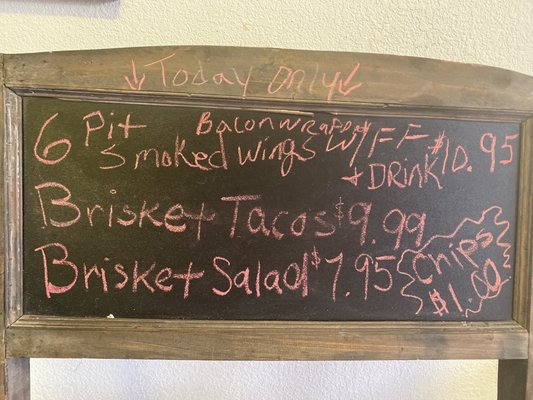 ↓ Today only ↓
Bacon wrapped
6 Pit Smoked Wings w/FF $10.95
+ DRINK
Brisket Tacos $9.99
Brisket Salad $7.95
Chips
$1.00